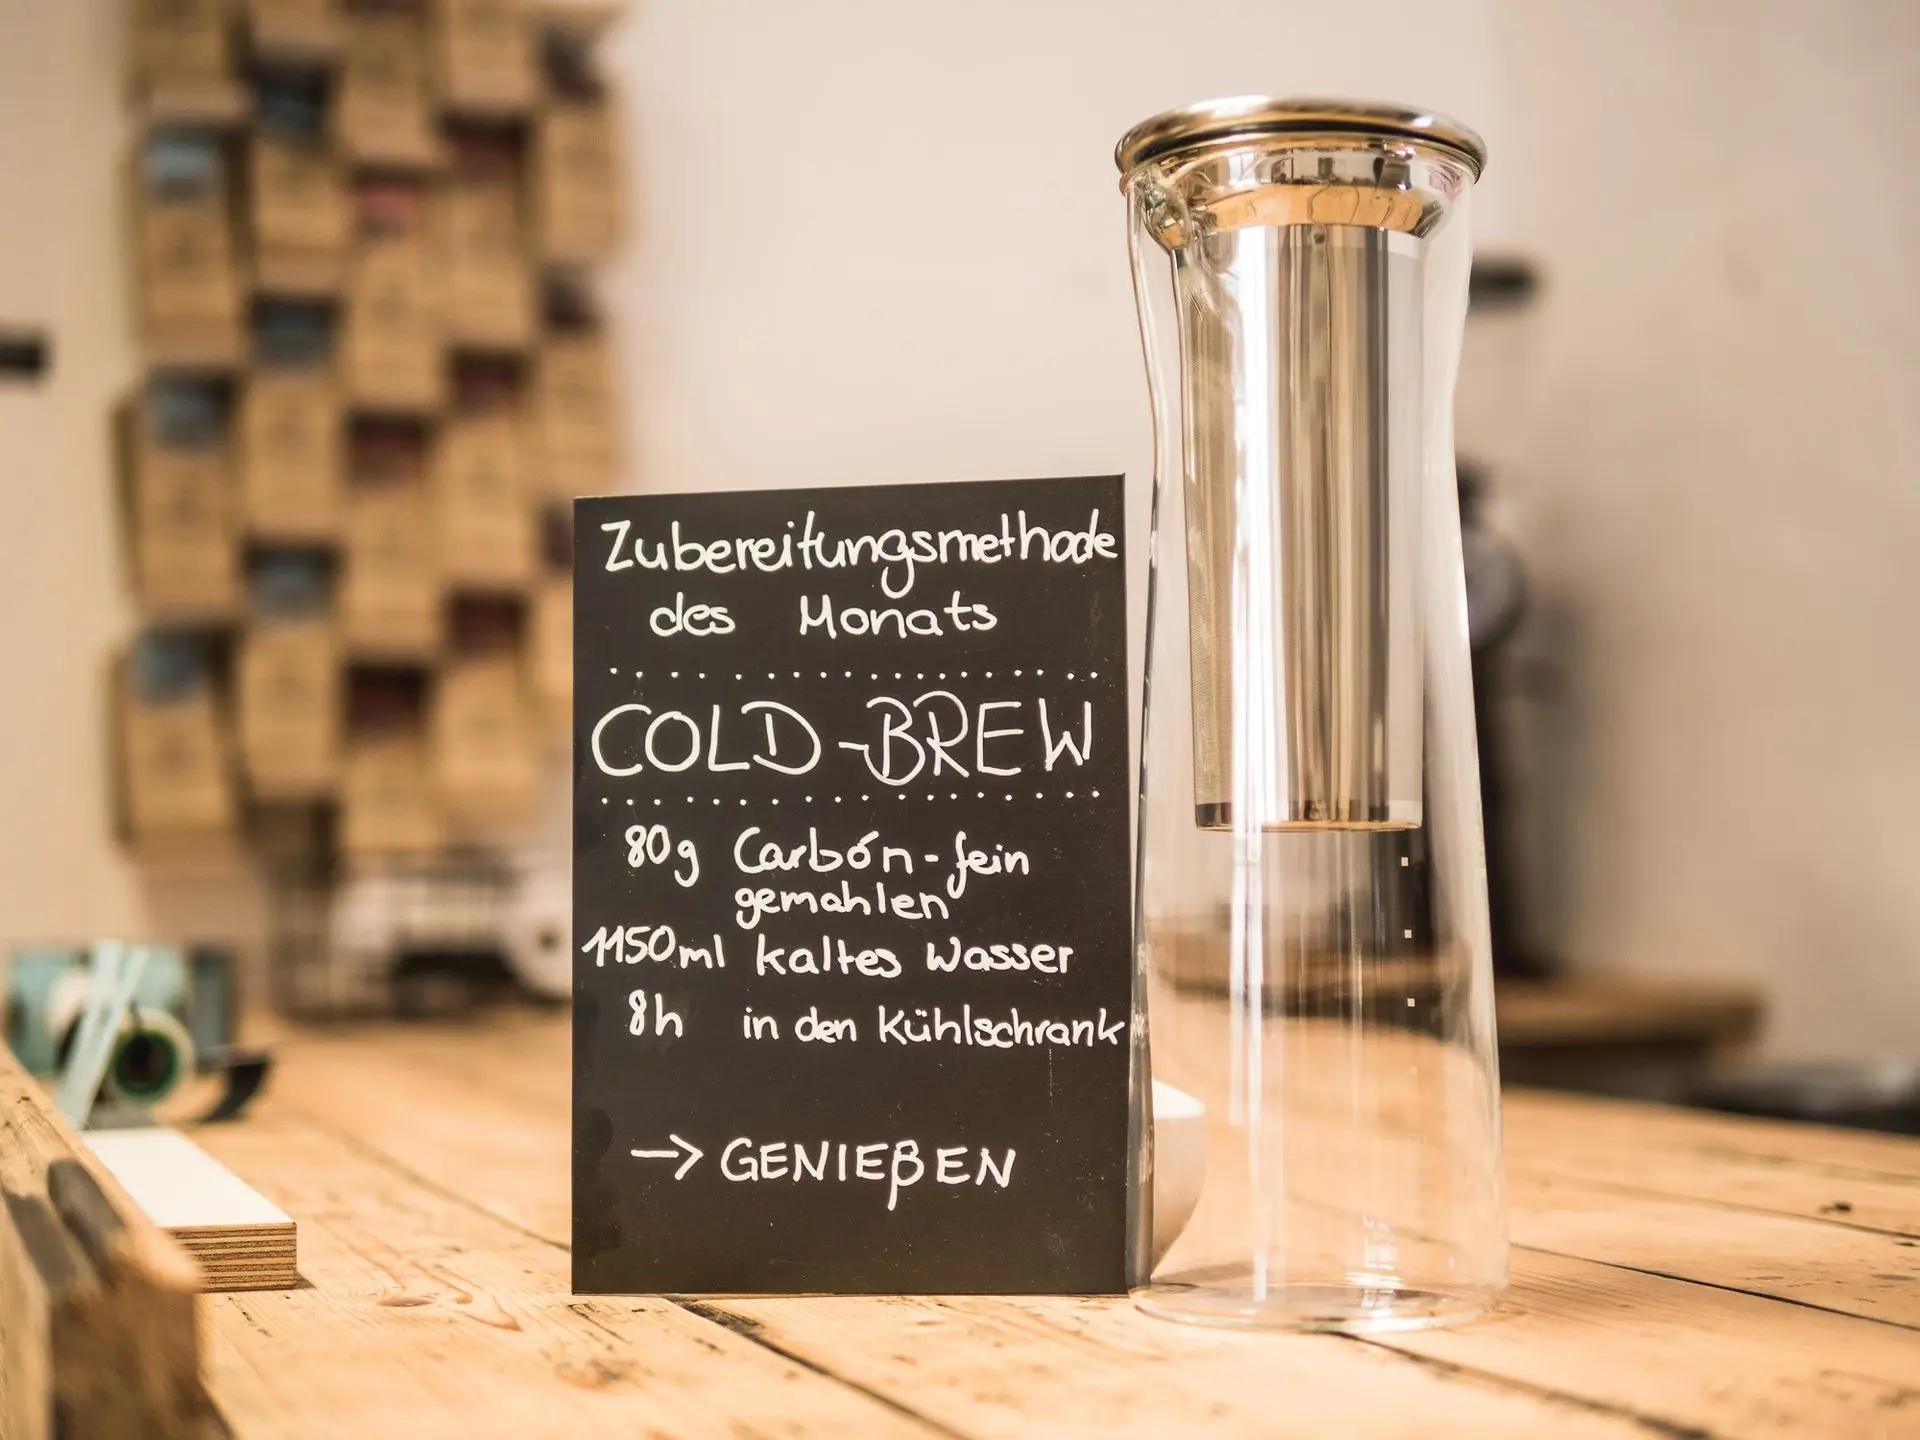 Zubereitungsmethode
des Monats
COLD-BREW
80g Carbón-fein
gemahlen
1150ml kaltes Wasser
8h in den Kühlschrank
→ GENIEßEN